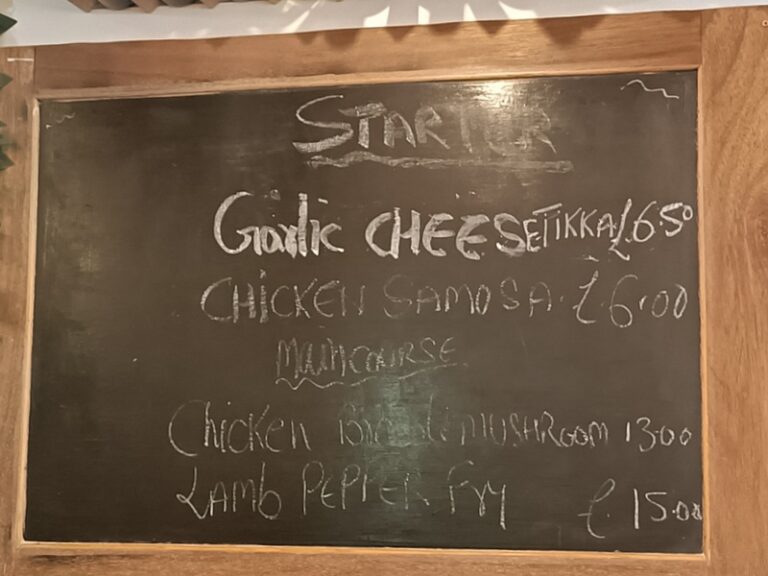 STARTER
Garlic CHEESE TIKKA £6.50
CHICKEN SAMOSA. £6.00
MAINCOURSE
Chicken MUSHROOM 13.00
LAMb PEPPER Fry £ 15.00